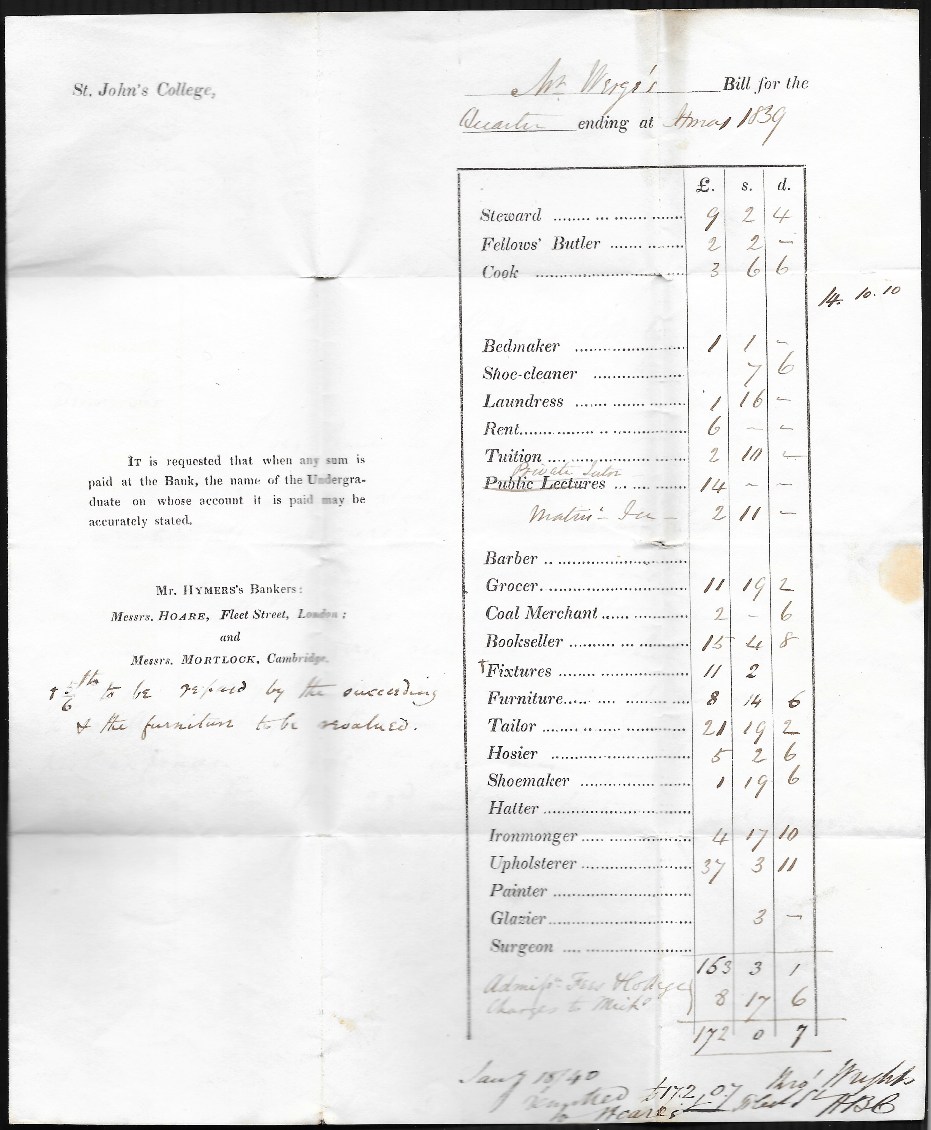 St. John's College,
Mr. Werge's Bill for the
Quarter ending at Xmas 1839
£. s. d.
Steward .................. 9 2 4
Fellows' Butler .................. 2 2 –
Cook .................. 3 6 6
14. 10. 10
Bedmaker .................. 1 1 –
Shoe-cleaner .................. 7 6
Laundress .................. 1 16 –
Rent .................. 6 – –
Tuition .................. 2 10 –
Private Tutor
Public Lectures .................. 14 – –
Matric. Fee – 2 11 –
Barber ..................
Grocer .................. 11 19 2
Coal Merchant .................. 2 – 6
Bookseller .................. 15 4 8
†Fixtures .................. 11 2
Furniture .................. 8 14 6
Tailor .................. 21 19 2
Hosier .................. 5 2 6
Shoemaker .................. 1 19 6
Hatter ..................
Ironmonger .................. 4 17 10
Upholsterer .................. 37 3 11
Painter ..................
Glazier .................. 3 –
Surgeon ..................
163 3 1
Admissn. Fees & College
Charges to Michs. 8 17 6
172 0 7
IT is requested that when any sum is
paid at the Bank, the name of the Undergra-
duate on whose account it is paid may be
accurately stated.
Mr. HYMERS's Bankers:
Messrs. HOARE, Fleet Street, London;
and
Messrs. MORTLOCK, Cambridge.
† 5/6ths to be repaid by the succeeding
& the furniture to be revalued.
Jany 1840
£172 , 0 7 Wright
to Hoares Fleet St